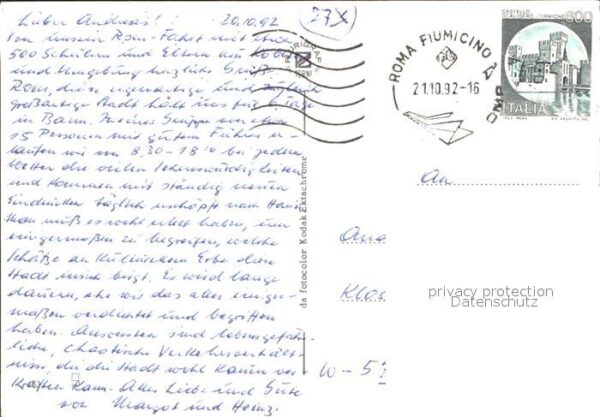 Lieber Andreas! 20.10.92
Von unserer Rom-Fahrt mit etwa
500 Schülern und Eltern aus
und Umgebung herzliche Grüße
Rom, diese eigenartige und zugleich
großartige Stadt hält uns für 6 Tage
in Bann. In einer Gruppe von etwa
15 Personen mit gutem Führer er-
laufen wir von 8.30-18°° bei jedem
Wetter die vielen Sehenswürdigkeiten
und kommen mit ständig neuen
Eindrücken täglich erschöpft nach Hause
Man muß es wohl erlebt haben, um
einigermaßen zu begreifen, welche
Schätze an kulturellem Erbe diese
Stadt in sich birgt. Es wird lange
dauern, ehe wir das alles einiger-
maßen verdichtet und begriffen
haben. Ansonsten sind lebensgefähr-
liche, chaotische Verkehrsverhält-
nisse, die die Stadt wohl kaum ver-
kraften kann. Alles Liebe und Gute
von Margot und Heinz.
(27X)
TERNI
da fotocolor Kodak Ektachrome
ROMA FIUMICINO A
21.10.92-16
CASTELLO
SCALIGERO - SIRMIONE
800
ITALIA
An
And
Klos
W - 53
privacy protection
Datenschutz